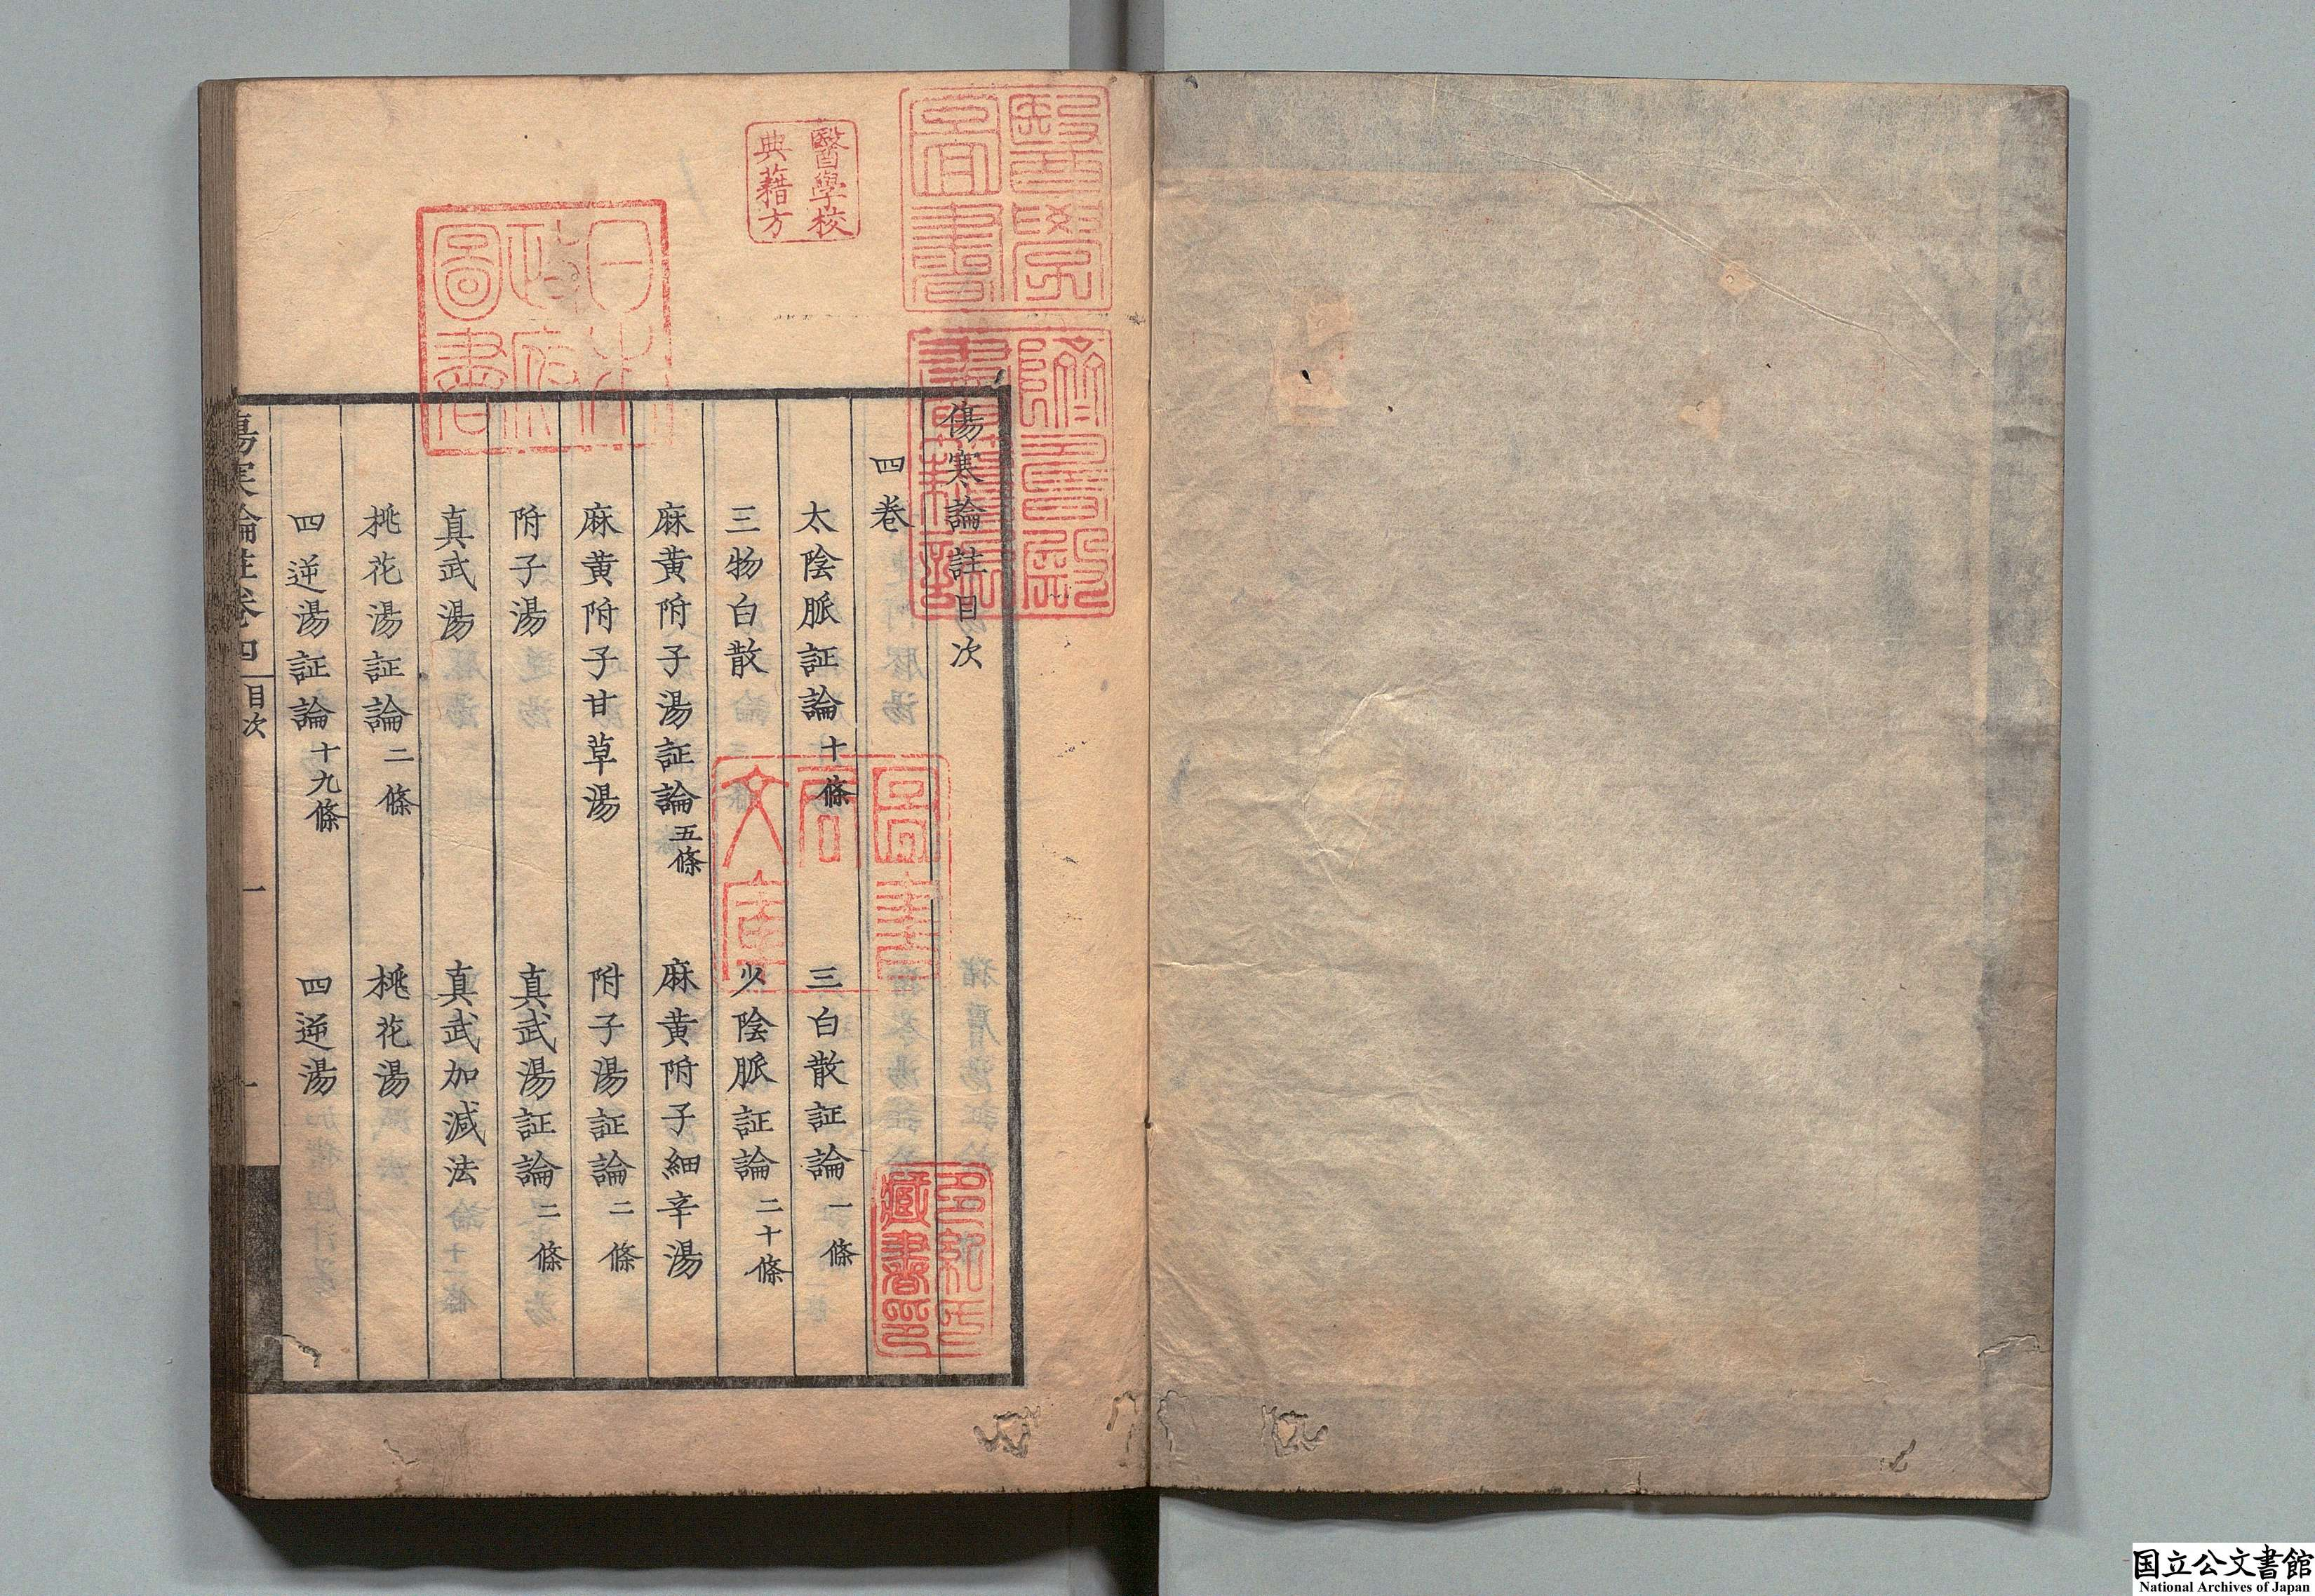 傷寒論註目次
四卷
太陰脈証論十條　三白散証論一條
三物白散　少陰脈証論二十條
麻黄附子湯証論五條　麻黄附子細辛湯
麻黄附子甘草湯　附子湯証論二條
附子湯　真武湯証論二條
真武湯　真武加減法
桃花湯証論二條　桃花湯
四逆湯証論十九條　四逆湯
傷寒論註卷四　目次　一
醫學校
典籍方
醫學
圖書
日本
政府
圖書
躋壽殿
書籍記
多紀氏
藏書印
国立公文書館
National Archives of Japan